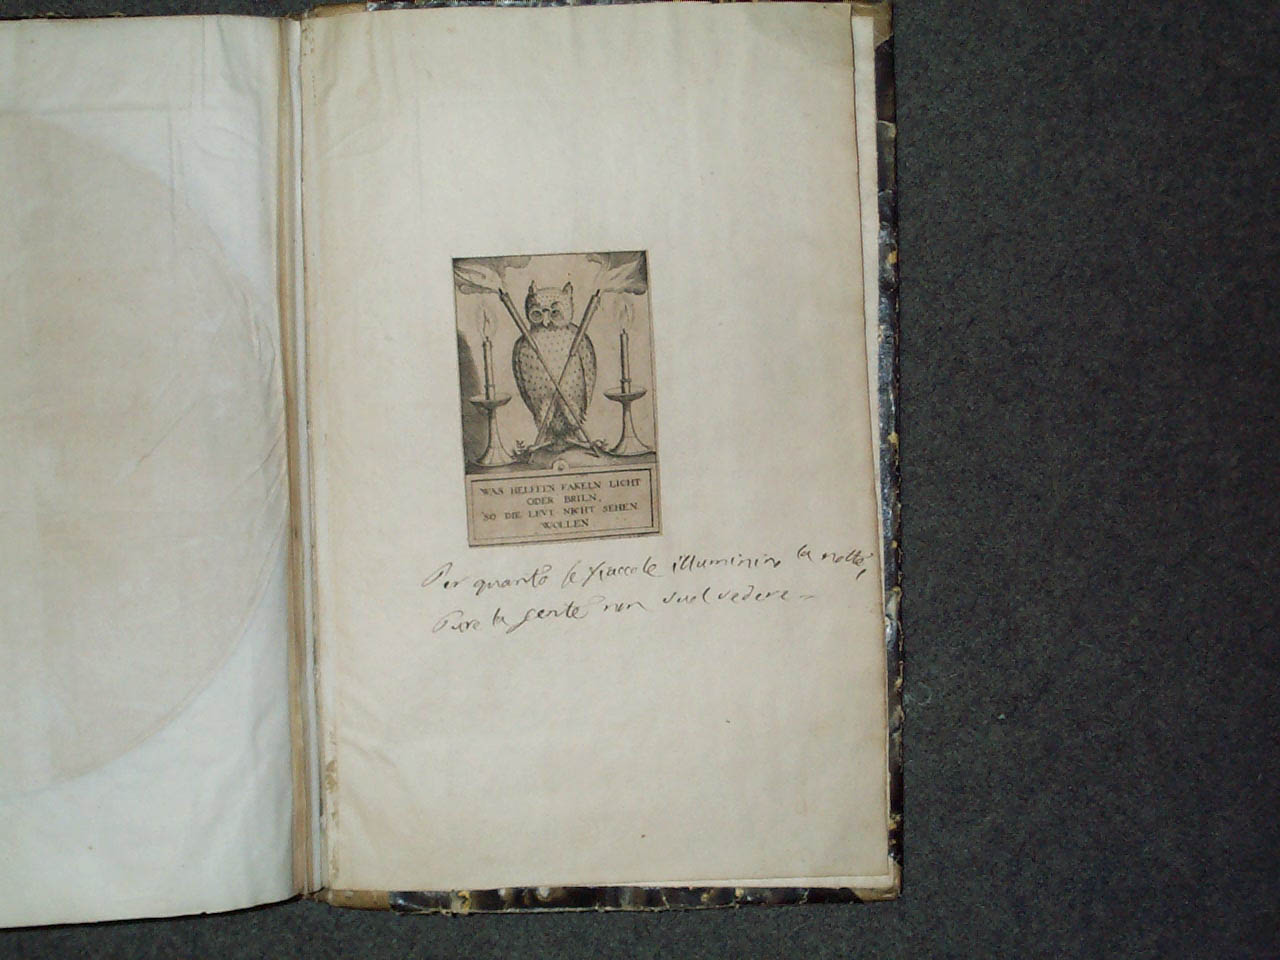 WAS HELFFEN FAKELN LICHT
ODER BRILN,
SO DIE LEVT NICHT SEHEN
WOLLEN
Per quanto le fiaccole illuminin la notte,
Pure la gente non vuol vedere